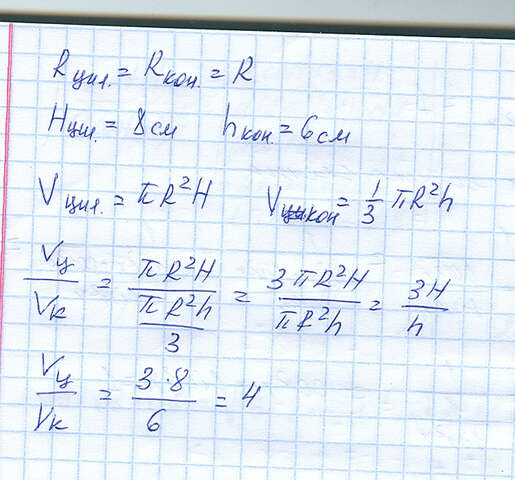 Rцил. = Rкон. = R
Hцил. = 8 см hкон. = 6 см
Vцил. = πR²H Vкон = 1/3 πR²h
Vц/Vк = πR²H/(πR²h/3) = 3πR²H/πR²h = 3H/h
Vц/Vк = 3·8/6 = 4